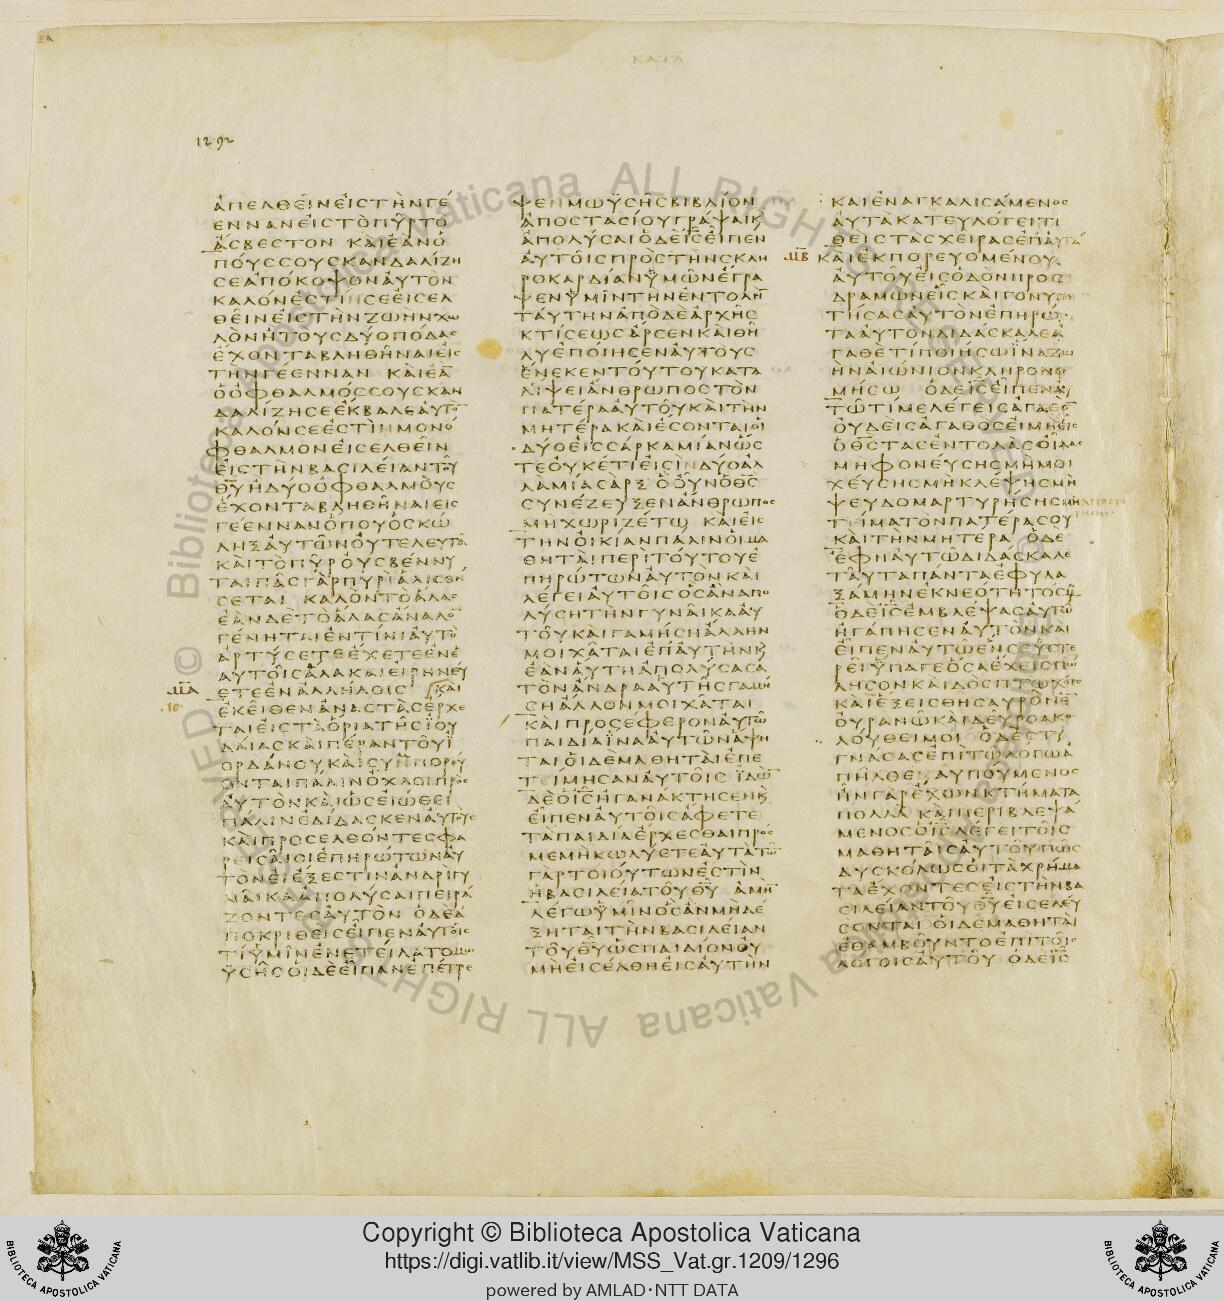 ΚΑΤΑ
1292
ΑΠΕΛΘΕΙΝΕΙΣΤΗΝΓΕ
ΕΝΝΑΝΕΙΣΤΟΠΥΡΤΟ
ΑΣΒΕΣΤΟΝ ΚΑΙΕΑΝΟ
ΠΟΥΣΣΟΥΣΚΑΝΔΑΛΙΖΗ
ΣΕΑΠΟΚΟΨΟΝΑΥΤΟΝ
ΚΑΛΟΝΕΣΤΙΝΣΕΕΙΣΕΛ
ΘΕΙΝΕΙΣΤΗΝΖΩΗΝΧΩ
ΛΟΝΗΤΟΥΣΔΥΟΠΟΔΑΣ
ΕΧΟΝΤΑΒΛΗΘΗΝΑΙΕΙΣ
ΤΗΝΓΕΕΝΝΑΝ ΚΑΙΕΑ̅
ΟΟΦΘΑΛΜΟΣΣΟΥΣΚΑΝ
ΔΑΛΙΖΗΣΕΕΚΒΑΛΕΑΥΤΟ̅
ΚΑΛΟΝΣΕΕΣΤΙΝΜΟΝΟ
ΦΘΑΛΜΟΝΕΙΣΕΛΘΕΙΝ
ΕΙΣΤΗΝΒΑΣΙΛΕΙΑΝΤΟΥ
Θ̅Υ̅ΗΔΥΟΟΦΘΑΛΜΟΥΣ
ΕΧΟΝΤΑΒΛΗΘΗΝΑΙΕΙΣ
ΓΕΕΝΝΑΝΟΠΟΥΟΣΚΩ
ΛΗΞΑΥΤΩΝΟΥΤΕΛΕΥΤΑ
ΚΑΙΤΟΠΥΡΟΥΣΒΕΝΝΥ
ΤΑΙΠΑΣΓΑΡΠΥΡΙΑΛΙΣΘΗ
ΣΕΤΑΙ ΚΑΛΟΝΤΟΑΛΑΣ
ΕΑΝΔΕΤΟΑΛΑΣΑΝΑΛΟ̅
ΓΕΝΗΤΑΙΕΝΤΙΝΙΑΥΤΟ
ΑΡΤΥΣΕΤΕΕΧΕΤΕΕΝΕ
ΑΥΤΟΙΣΑΛΑΚΑΙΕΙΡΗΝΕΥ
ΕΤΕΕΝΑΛΛΗΛΟΙΣ ΚΑΙ
ΕΚΕΙΘΕΝΑΝΑΣΤΑΣΕΡΧΕ
ΤΑΙΕΙΣΤΑΟΡΙΑΤΗΣΙΟΥ
ΔΑΙΑΣΚΑΙΠΕΡΑΝΤΟΥΙ
ΟΡΔΑΝΟΥΚΑΙΣΥΝΠΟΡΕΥ
ΟΝΤΑΙΠΑΛΙΝΟΧΛΟΙΠΡΟΣ
ΑΥΤΟΝΚΑΙΩΣΕΙΩΘΕΙ
ΠΑΛΙΝΕΔΙΔΑΣΚΕΝΑΥΤΟΥΣ
ΚΑΙΠΡΟΣΕΛΘΟΝΤΕΣΦΑ
ΡΕΙΣΑΙΟΙΕΠΗΡΩΤΩΝΑΥ
ΤΟΝΕΙΕΞΕΣΤΙΝΑΝΔΡΙΓΥ
ΝΑΙΚΑΑΠΟΛΥΣΑΙΠΕΙΡΑ
ΖΟΝΤΕΣΑΥΤΟΝ ΟΔΕΑ
ΠΟΚΡΙΘΕΙΣΕΙΠΕΝΑΥΤΟΙΣ
ΤΙΥΜΙΝΕΝΕΤΕΙΛΑΤΟΜΩ
ΥΣΗΣΟΙΔΕΕΙΠΑΝΕΠΕΤΡΕ
ΨΕΝΜΩΥΣΗΣΒΙΒΛΙΟΝ
ΑΠΟΣΤΑΣΙΟΥΓΡΑΨΑΙΚ
ΑΠΟΛΥΣΑΙΟΔΕΙ̅Σ̅ΕΙΠΕΝ
ΑΥΤΟΙΣΠΡΟΣΤΗΝΣΚΛΗ
ΡΟΚΑΡΔΙΑΝΥΜΩΝΕΓΡΑ
ΨΕΝΥΜΙΝΤΗΝΕΝΤΟΛΗ̅
ΤΑΥΤΗΝΑΠΟΔΕΑΡΧΗΣ
ΚΤΙΣΕΩΣΑΡΣΕΝΚΑΙΘΗ
ΛΥΕΠΟΙΗΣΕΝΑΥΤΟΥΣ
ΕΝΕΚΕΝΤΟΥΤΟΥΚΑΤΑ
ΛΙΨΕΙΑΝΘΡΩΠΟΣΤΟΝ
ΠΑΤΕΡΑΑΥΤΟΥΚΑΙΤΗΝ
ΜΗΤΕΡΑΚΑΙΕΣΟΝΤΑΙΟΙ
ΔΥΟΕΙΣΣΑΡΚΑΜΙΑΝΩΣ
ΤΕΟΥΚΕΤΙΕΙΣΙΝΔΥΟΑΛ
ΛΑΜΙΑΣΑΡΞ ΟΟΥΝΟΘ̅Σ̅
ΣΥΝΕΖΕΥΞΕΝΑΝΘΡΩΠΟΣ
ΜΗΧΩΡΙΖΕΤΩ ΚΑΙΕΙΣ
ΤΗΝΟΙΚΙΑΝΠΑΛΙΝΟΙΜΑ
ΘΗΤΑΙΠΕΡΙΤΟΥΤΟΥΕ
ΠΗΡΩΤΩΝΑΥΤΟΝΚΑΙ
ΛΕΓΕΙΑΥΤΟΙΣΟΣΑΝΑΠΟ
ΛΥΣΗΤΗΝΓΥΝΑΙΚΑΑΥ
ΤΟΥΚΑΙΓΑΜΗΣΗΑΛΛΗΝ
ΜΟΙΧΑΤΑΙΕΠΑΥΤΗΝΚ
ΕΑΝΑΥΤΗΑΠΟΛΥΣΑΣΑ
ΤΟΝΑΝΔΡΑΑΥΤΗΣΓΑΜΗ
ΣΗΑΛΛΟΝΜΟΙΧΑΤΑΙ
ΚΑΙΠΡΟΣΕΦΕΡΟΝΑΥΤΩ
ΠΑΙΔΙΑΙΝΑΑΥΤΩΝΑΨΗ
ΤΑΙΟΙΔΕΜΑΘΗΤΑΙΕΠΕ
ΤΕΙΜΗΣΑΝΑΥΤΟΙΣ ΙΔΩ̅
ΔΕΟΙ̅Σ̅ΗΓΑΝΑΚΤΗΣΕΝΚ
ΕΙΠΕΝΑΥΤΟΙΣΑΦΕΤΕ
ΤΑΠΑΙΔΙΑΕΡΧΕΣΘΑΙΠΡΟΣ
ΜΕΜΗΚΩΛΥΕΤΕΑΥΤΑΤΩ̅
ΓΑΡΤΟΙΟΥΤΩΝΕΣΤΙΝ
ΗΒΑΣΙΛΕΙΑΤΟΥΘ̅Υ̅ ΑΜΗ̅
ΛΕΓΩΥΜΙΝΟΣΑΝΜΗΔΕ
ΞΗΤΑΙΤΗΝΒΑΣΙΛΕΙΑΝ
ΤΟΥΘ̅Υ̅ΩΣΠΑΙΔΙΟΝΟΥ
ΜΗΕΙΣΕΛΘΗΕΙΣΑΥΤΗΝ
ΚΑΙΕΝΑΓΚΑΛΙΣΑΜΕΝΟΣ
ΑΥΤΑΚΑΤΕΥΛΟΓΕΙΤΙ
ΘΕΙΣΤΑΣΧΕΙΡΑΣΕΠΑΥΤΑ
ΚΑΙΕΚΠΟΡΕΥΟΜΕΝΟΥ
ΑΥΤΟΥΕΙΣΟΔΟΝΠΡΟΣ
ΔΡΑΜΩΝΕΙΣΚΑΙΓΟΝΥΠΕ
ΤΗΣΑΣΑΥΤΟΝΕΠΗΡΩ
ΤΑΑΥΤΟΝΔΙΔΑΣΚΑΛΕΑ
ΓΑΘΕΤΙΠΟΙΗΣΩΙΝΑΖΩ
ΗΝΑΙΩΝΙΟΝΚΛΗΡΟΝΟ
ΜΗΣΩ ΟΔΕΙ̅Σ̅ΕΙΠΕΝΑΥ
ΤΩΤΙΜΕΛΕΓΕΙΣΑΓΑΘΟ̅
ΟΥΔΕΙΣΑΓΑΘΟΣΕΙΜΗΕΙΣ
ΟΘ̅Σ̅ΤΑΣΕΝΤΟΛΑΣΟΙΔΑΣ
ΜΗΦΟΝΕΥΣΗΣΜΗΜΟΙ
ΧΕΥΣΗΣΜΗΚΛΕΨΗΣΜΗ
ΨΕΥΔΟΜΑΡΤΥΡΗΣΗΣ
ΤΕΙΜΑΤΟΝΠΑΤΕΡΑΣΟΥ
ΚΑΙΤΗΝΜΗΤΕΡΑ ΟΔΕ
ΕΦΗΑΥΤΩΔΙΔΑΣΚΑΛΕ
ΤΑΥΤΑΠΑΝΤΑΕΦΥΛΑ
ΞΑΜΗΝΕΚΝΕΟΤΗΤΟΣΜΟΥ
ΟΔΕΙ̅Σ̅ΕΜΒΛΕΨΑΣΑΥΤΩ
ΗΓΑΠΗΣΕΝΑΥΤΟΝΚΑΙ
ΕΙΠΕΝΑΥΤΩΕΝΣΕΥΣΤΕ
ΡΕΙΥΠΑΓΕΟΣΑΕΧΕΙΣΠΩ
ΛΗΣΟΝΚΑΙΔΟΣΠΤΩΧΟΙΣ
ΚΑΙΕΞΕΙΣΘΗΣΑΥΡΟΝΕ̅
ΟΥΡΑΝΩΚΑΙΔΕΥΡΟΑΚΟ
ΛΟΥΘΕΙΜΟΙ ΟΔΕΣΤΥ
ΓΝΑΣΑΣΕΠΙΤΩΛΟΓΩΑ
ΠΗΛΘΕΝΛΥΠΟΥΜΕΝΟΣ
ΗΝΓΑΡΕΧΩΝΚΤΗΜΑΤΑ
ΠΟΛΛΑ ΚΑΙΠΕΡΙΒΛΕΨΑ
ΜΕΝΟΣΟΙ̅Σ̅ΛΕΓΕΙΤΟΙΣ
ΜΑΘΗΤΑΙΣΑΥΤΟΥΠΩΣ
ΔΥΣΚΟΛΩΣΟΙΤΑΧΡΗΜΑ
ΤΑΕΧΟΝΤΕΣΕΙΣΤΗΝΒΑ
ΣΙΛΕΙΑΝΤΟΥΘ̅Υ̅ΕΙΣΕΛΕΥ
ΣΟΝΤΑΙ ΟΙΔΕΜΑΘΗΤΑΙ
ΕΘΑΜΒΟΥΝΤΟΕΠΙΤΟΙΣ
ΛΟΓΟΙΣΑΥΤΟΥ ΟΔΕΙ̅Σ̅
© Biblioteca Apostolica Vaticana ALL RIGHTS RESERVED
Copyright © Biblioteca Apostolica Vaticana
https://digi.vatlib.it/view/MSS_Vat.gr.1209/1296
powered by AMLAD·NTT DATA
BIBLIOTECA APOSTOLICA VATICANA
BIBLIOTECA APOSTOLICA VATICANA